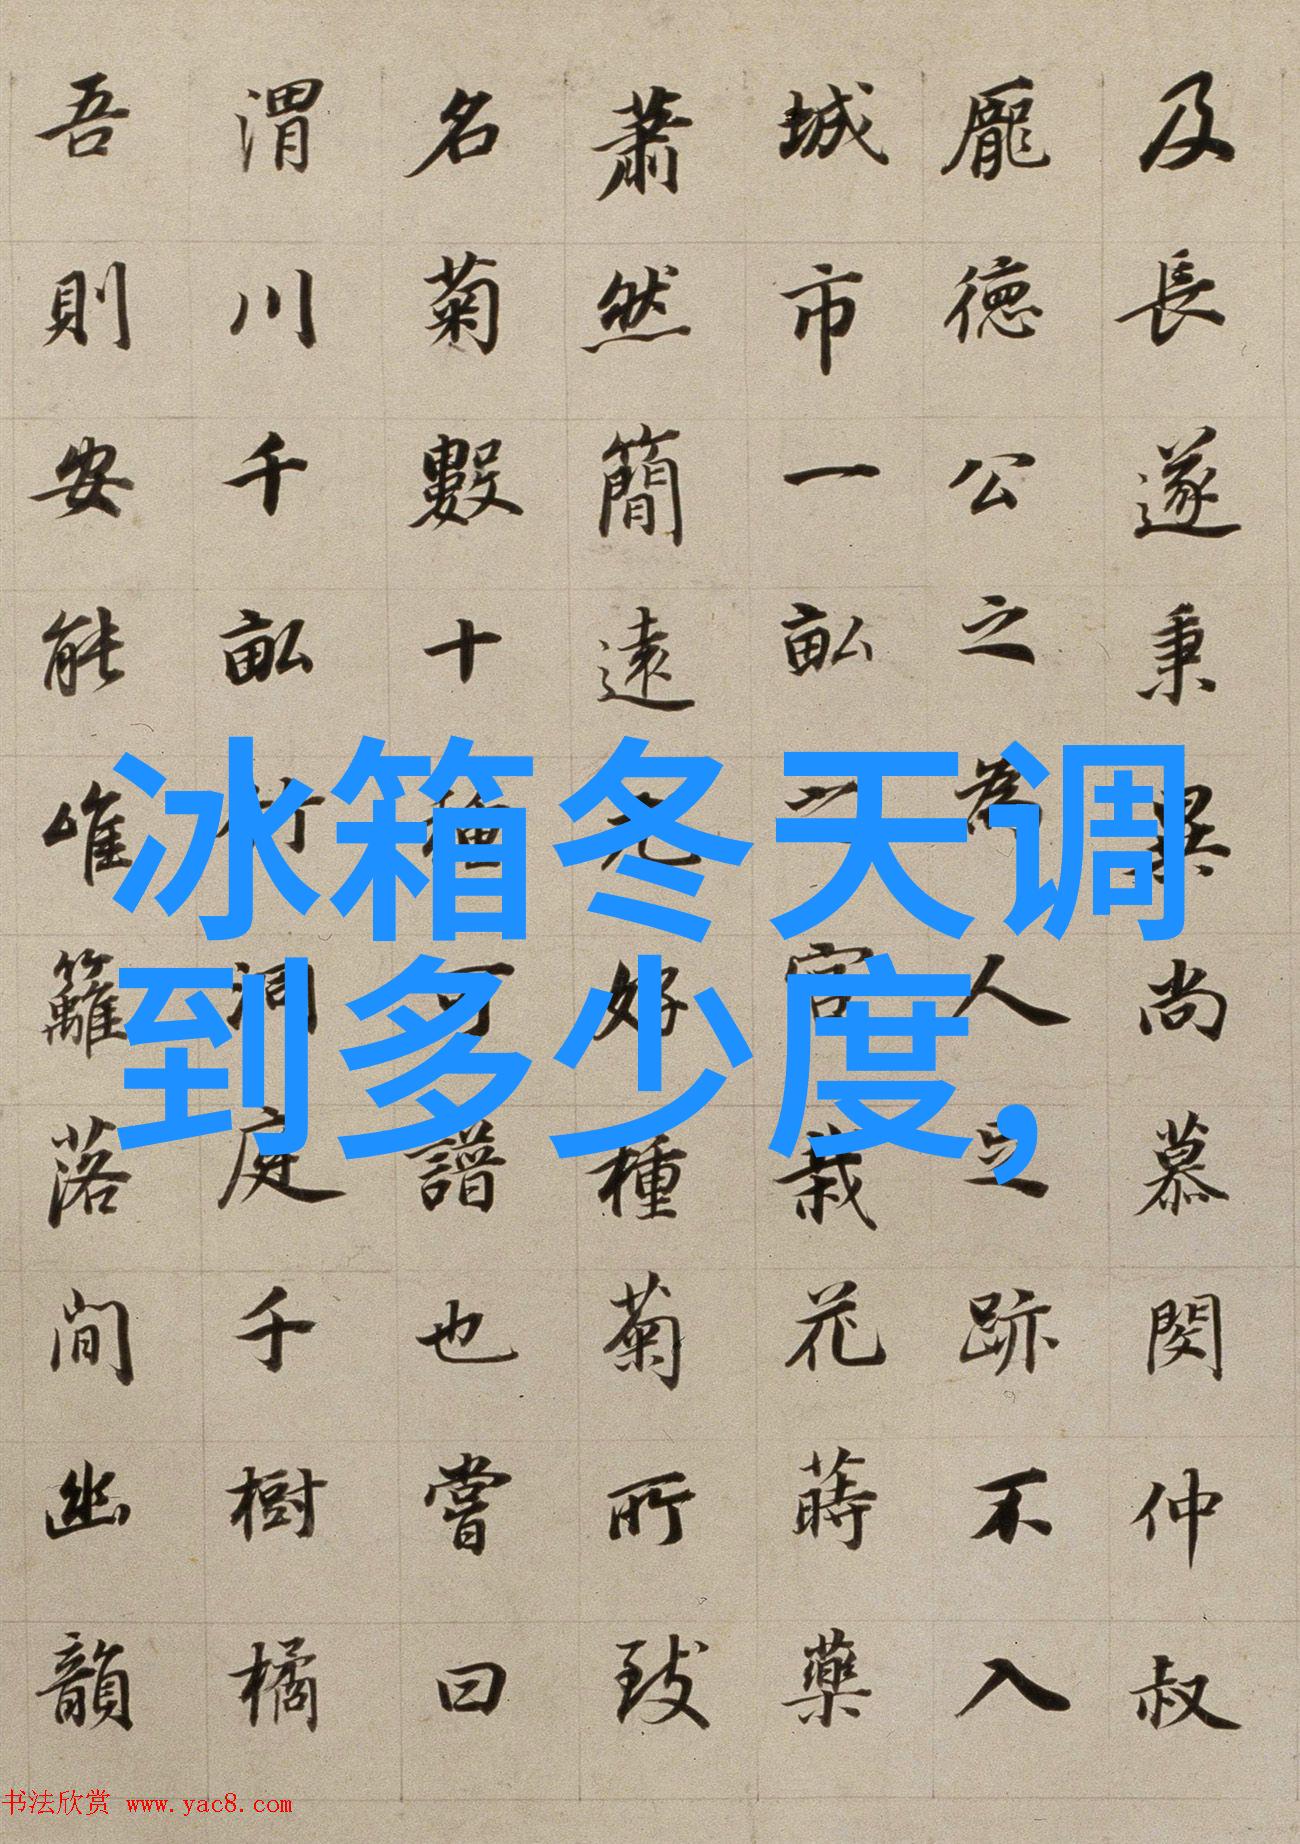 冰箱冬天调
到多少度,
及長遂秉異尚慕閔仲叔
龐德公之為人之跡不入
城市一畝之宮栽花蒔藥
蕭然簡遠尤好種菊所致
名菊數十種可譜也嘗曰
渭川千畝竹洞庭千樹橘
吾則安能唯籬落間幽韻
书法欣赏 www.yac8.com